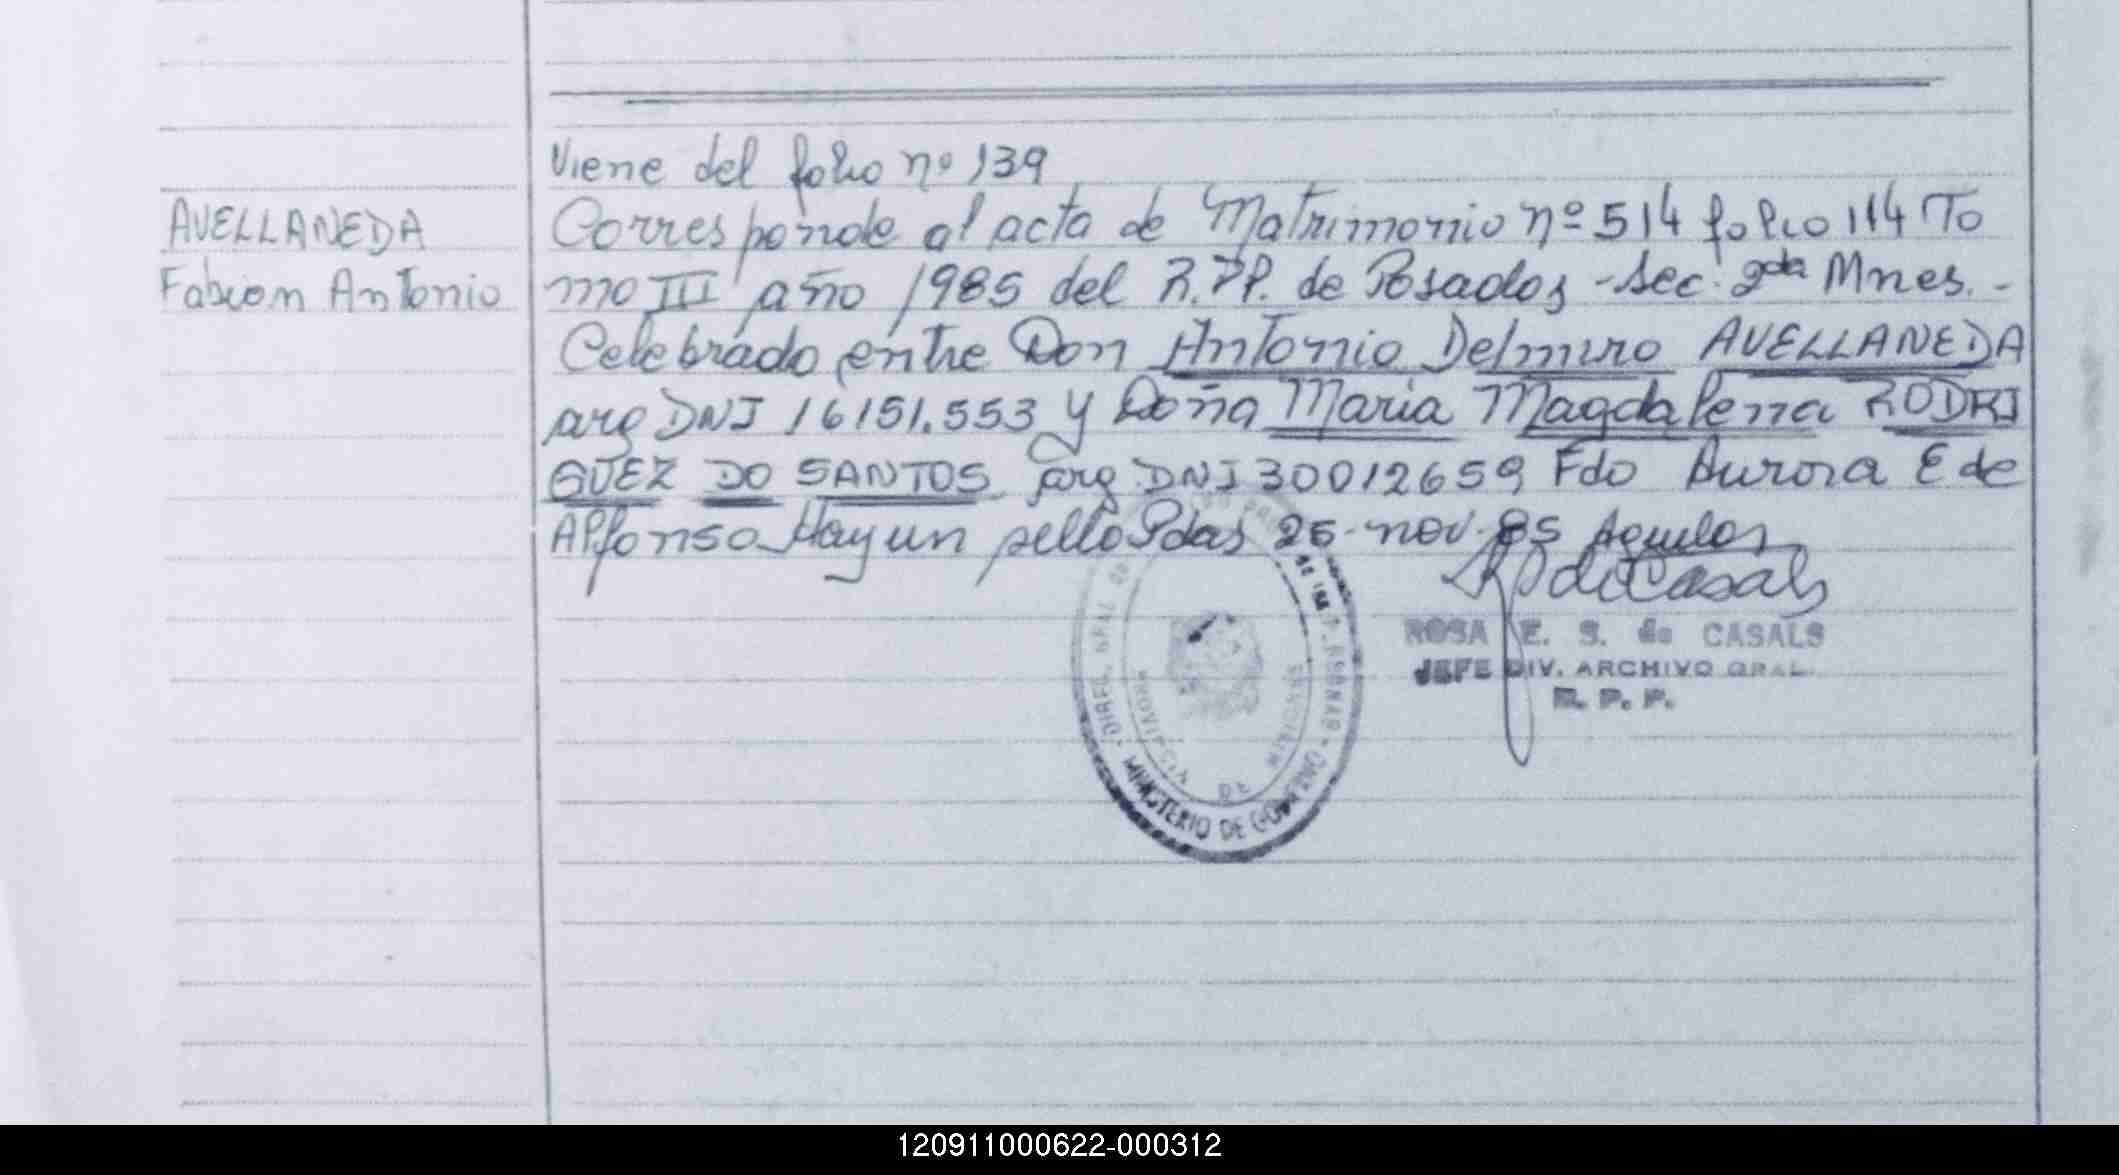 Viene del folio nº 139
AVELLANEDA
Fabian Antonio
Corresponde al acta de Matrimonio nº 514 folio 114 To
mo III año 1985 del R.PP. de Posadas - Sec. 2da Mnes. -
Celebrado entre Don Antonio Delmiro AVELLANEDA
arg DNI 16151.553 y Doña Maria Magdalena RODRI
GUEZ DO SANTOS arg DNI 30012659 Fdo Aurora E de
Alfonso Hay un sello Pdas 26-nov-85
de Casals
ROSA E. S. de CASALS
JEFE DIV. ARCHIVO GRAL.
R. P. P.
DIREC. GRAL DE
MINISTERIO DE GOBIERNO
PROVINCIA DE MISIONES
120911000622-000312